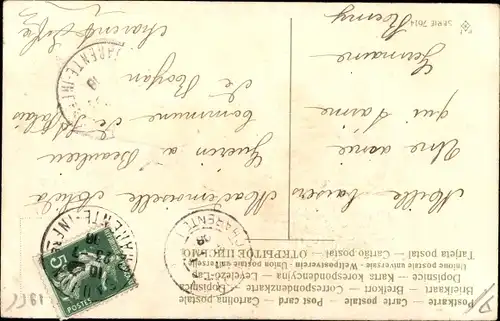 Postkarte - Carte postale - Post card - Cartolina postale
Briefkaart - Brefkort - Correspondenzkarte - Dopisnica
Dopisnice - Karta korespondencyjna - Levelező-Lap
Unione postale universale - Weltpostverein - Union postale universelle
Tarjeta postal - Cartão postal - ОТКРЫТОЕ ПИСЬМО
SERIE 7014
Mille baisers
Une amie
qui t'aime
Germaine
Remy
Mademoiselle
Guerin à Beaulieu
Commune de St Palais
de Royan
Charente Infre
CHARENTE-INFRE
POSTES
5